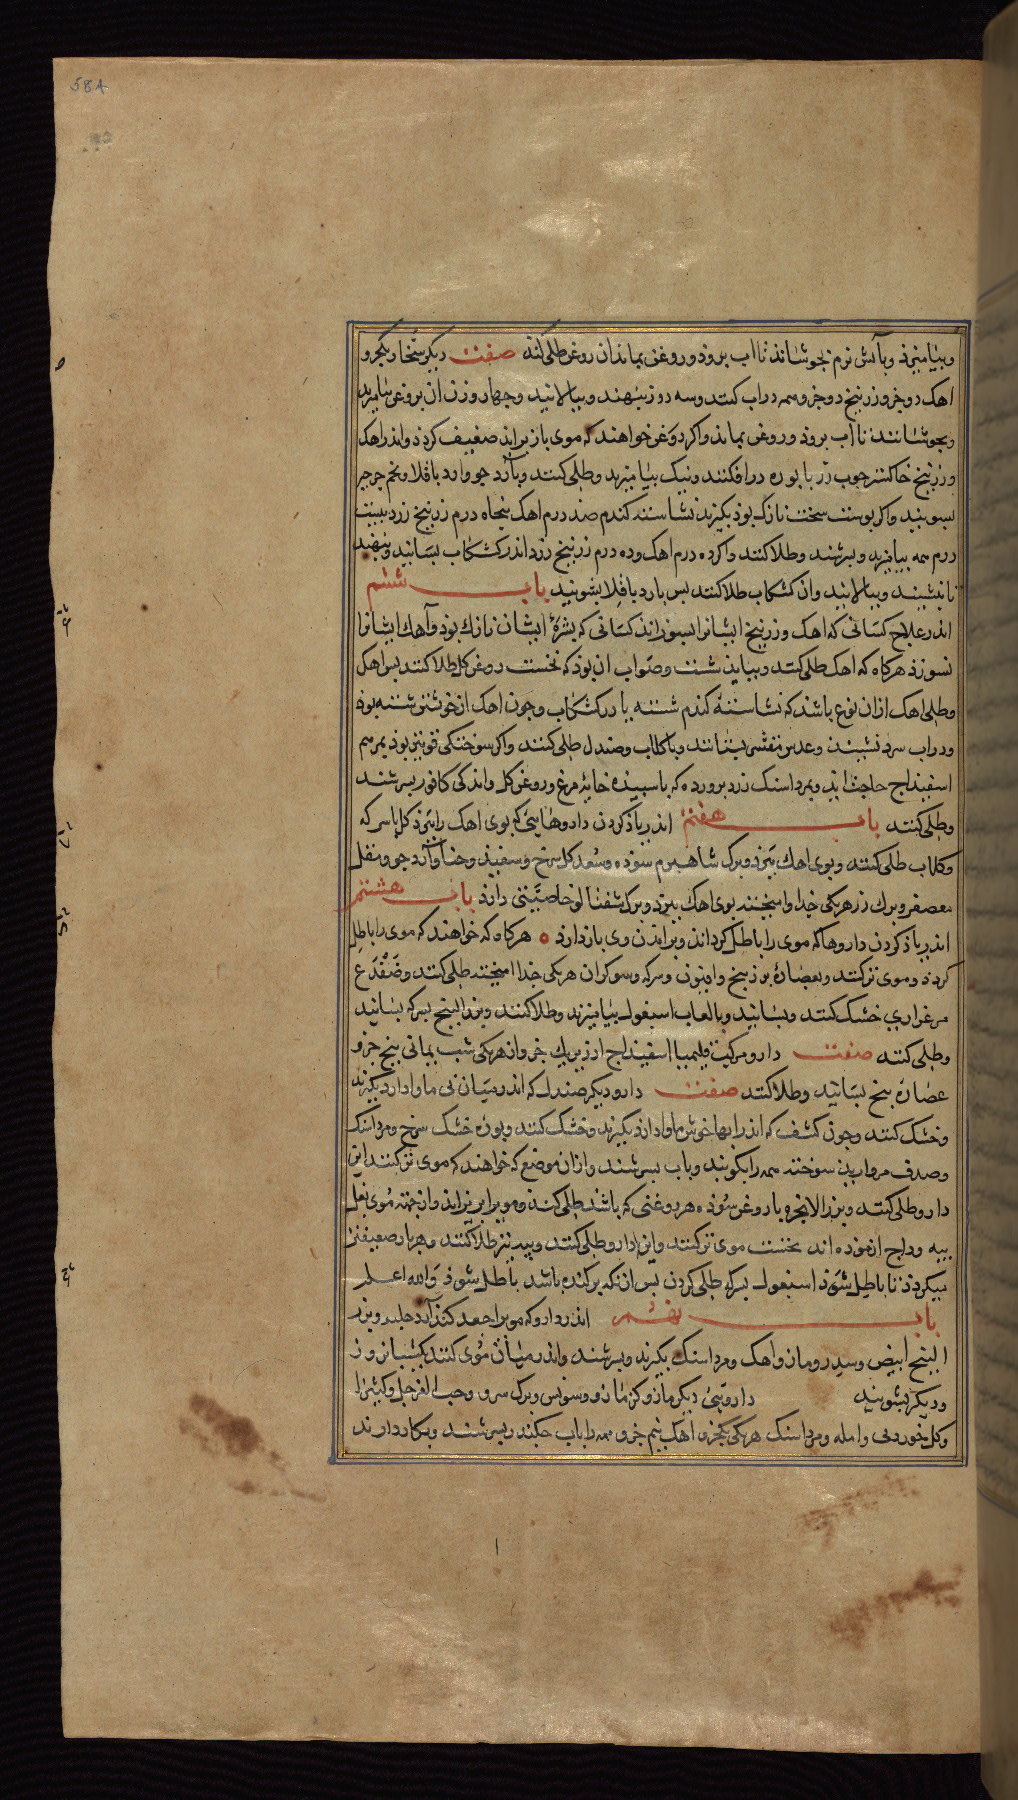 58A
وبیامیزذ وبآتش نرم بجوشانذ تا اب بروذ وروغن بماند ان روغن طلی کند صفت دیکر شخار یکجزو
اهک دو جزو زرنیخ دو جزو همه در اب کنند وسه روز بنهند وبپالایند وچهار وزن ان بروغن بیامیزند
وبجوشانند تا اب بروذ وروغن بماند واکر خواهند که موی باز برایذ ضعیف کردذ واندر اهک
وزرنیخ خاکستر چوب رز با بوره در افکنند ونیک بیامیزند وطلی کنند وبآرد جو وارد باقلا وتخم
بشویند واکر بوست سخت نازک بوذ بکیرند نشاسته کندم صد درم اهک پنجاه درم زرنیخ زرد بیست
درم همه بیامیزند وبسرشند وطلا کنند واکر ده درم اهک وده درم زرنیخ زرد اندر کشکاب بسایند وبنهند
تا بنشیند وبپالایند وان کشکاب طلا کنند بس بارد باقلا بشویند باب ششم
اندر علاج کسانی که اهک وزرنیخ ایشانرا بسوزاند کسانی که بشرهٔ ایشان نازک بوذ وآهک ایشانرا
بسوزذ هرکاه که اهک طلی کنند وبباید شست وصواب ان بوذ که نخست روغن کل طلا کنند بس اهک
وطلی اهک ازان نوع باشد که نشاستهٔ کندم شسته یا در کشکاب وچون اهک از خوشتن شسته بوذ
ودر اب سرد نشیند وعدس مقشر بستانند وبا کلاب وصندل طلی کنند واکر سوختکی قوی تر بوذ بمرهم
اسفیذاج حاجت ایذ وبمرداسنک زرد برورده که با سبیده خایهٔ مرغ وروغن کل واندکی کافور بسرشند
وطلی کنند باب هفتم اندر یاذ کردن داروهایی که بوی اهک را ببرذ کل با سرکه
وکلاب طلی کنند وبوی اهک ببرذ وبرک شاهسبرم سوذه وسعد کل سرخ وسفیذ وحنا وآرد جو وثفل
معصفر وبرک رز هر یکی جذا وامیخته بوی اهک ببرد وبرک شفتالو خاصیتی دارذ باب هشتم
اندر یاذ کردن داروها که موی را باطل کرداند وبرایذن وی باز دارذ ه هرکاه که خواهند که موی را باطل
کردذ وموی نتر کنند وبعصارهٔ بوز بنج وافیون وسرکه وسوکران هر یکی جذا امیخته طلی کنند وضفدع
مرغزاری خشک کنند وبسایند وبا لعاب اسبغول بیامیزند وطلا کنند وبزر البنج بسرکه بسایند
وطلی کنند صفت دارو مرکب قلیمیا اسفیذاج ارزیز یک جزو از هر یکی شب یمانی پنج جزو
عصارهٔ بنج بسایند وطلا کنند صفت دارو دیکر صندل که اندر میان نی ماوا دارد بکیرند
وخشک کنند وخون کشف که اندر ابها خوش ماوا دارد بکیرند وخشک کنند وبوره خشک سرخ ومرداسنک
وصدف مروارید سوخته همه را بکوبند وباب بسرشند وازان موضع که خواهند که موی نتر کنند این
دارو طلی کنند وبزر الانجره با روغن سوذه هر روغنی که باشد طلی کنند وموی را نیز براند وانجه موی بغل
ازموذه اند نخست موی نتر کنند واین دارو طلی کنند نیز طلا کنند وهربار ضعیفتر
میکردذ تا باطل شوذ اسبغول بسرکه طلی کردن بس ازانکه برکنده باشد باطل شوذ والله اعلم
باب نهم اندر دارو که موی را جعد کند آرد حلبه وبزر
البنج ابیض وسدر ومازو واهک ومرداسنک بکیرند وبسرشند واندر میان موی کنند یکشبانروز
ودیکر بشویند دارویی دیکر مازو وبرک سرو وحب الغر وکثیرا
وکل خوردنی وامله ومرداسنک هر یکی یکجزو اهک نیم جزو همه را باب بسرشند وبکار دارند